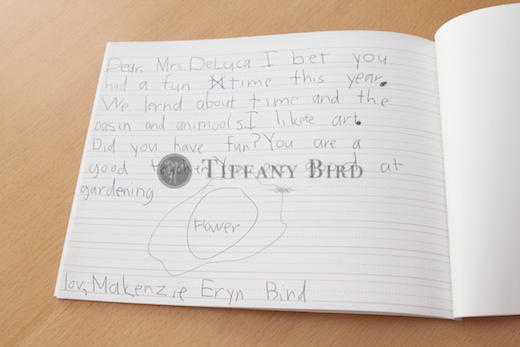 Dear, Mrs. DeLuca I bet you
had a fun time this year.
We lernd about time and the
oasin and animools. I likete art.
Did you have fun? You are a
good at
TIFFANY BIRD
gardening
Flower
lov, Makenzie Eryn Bird